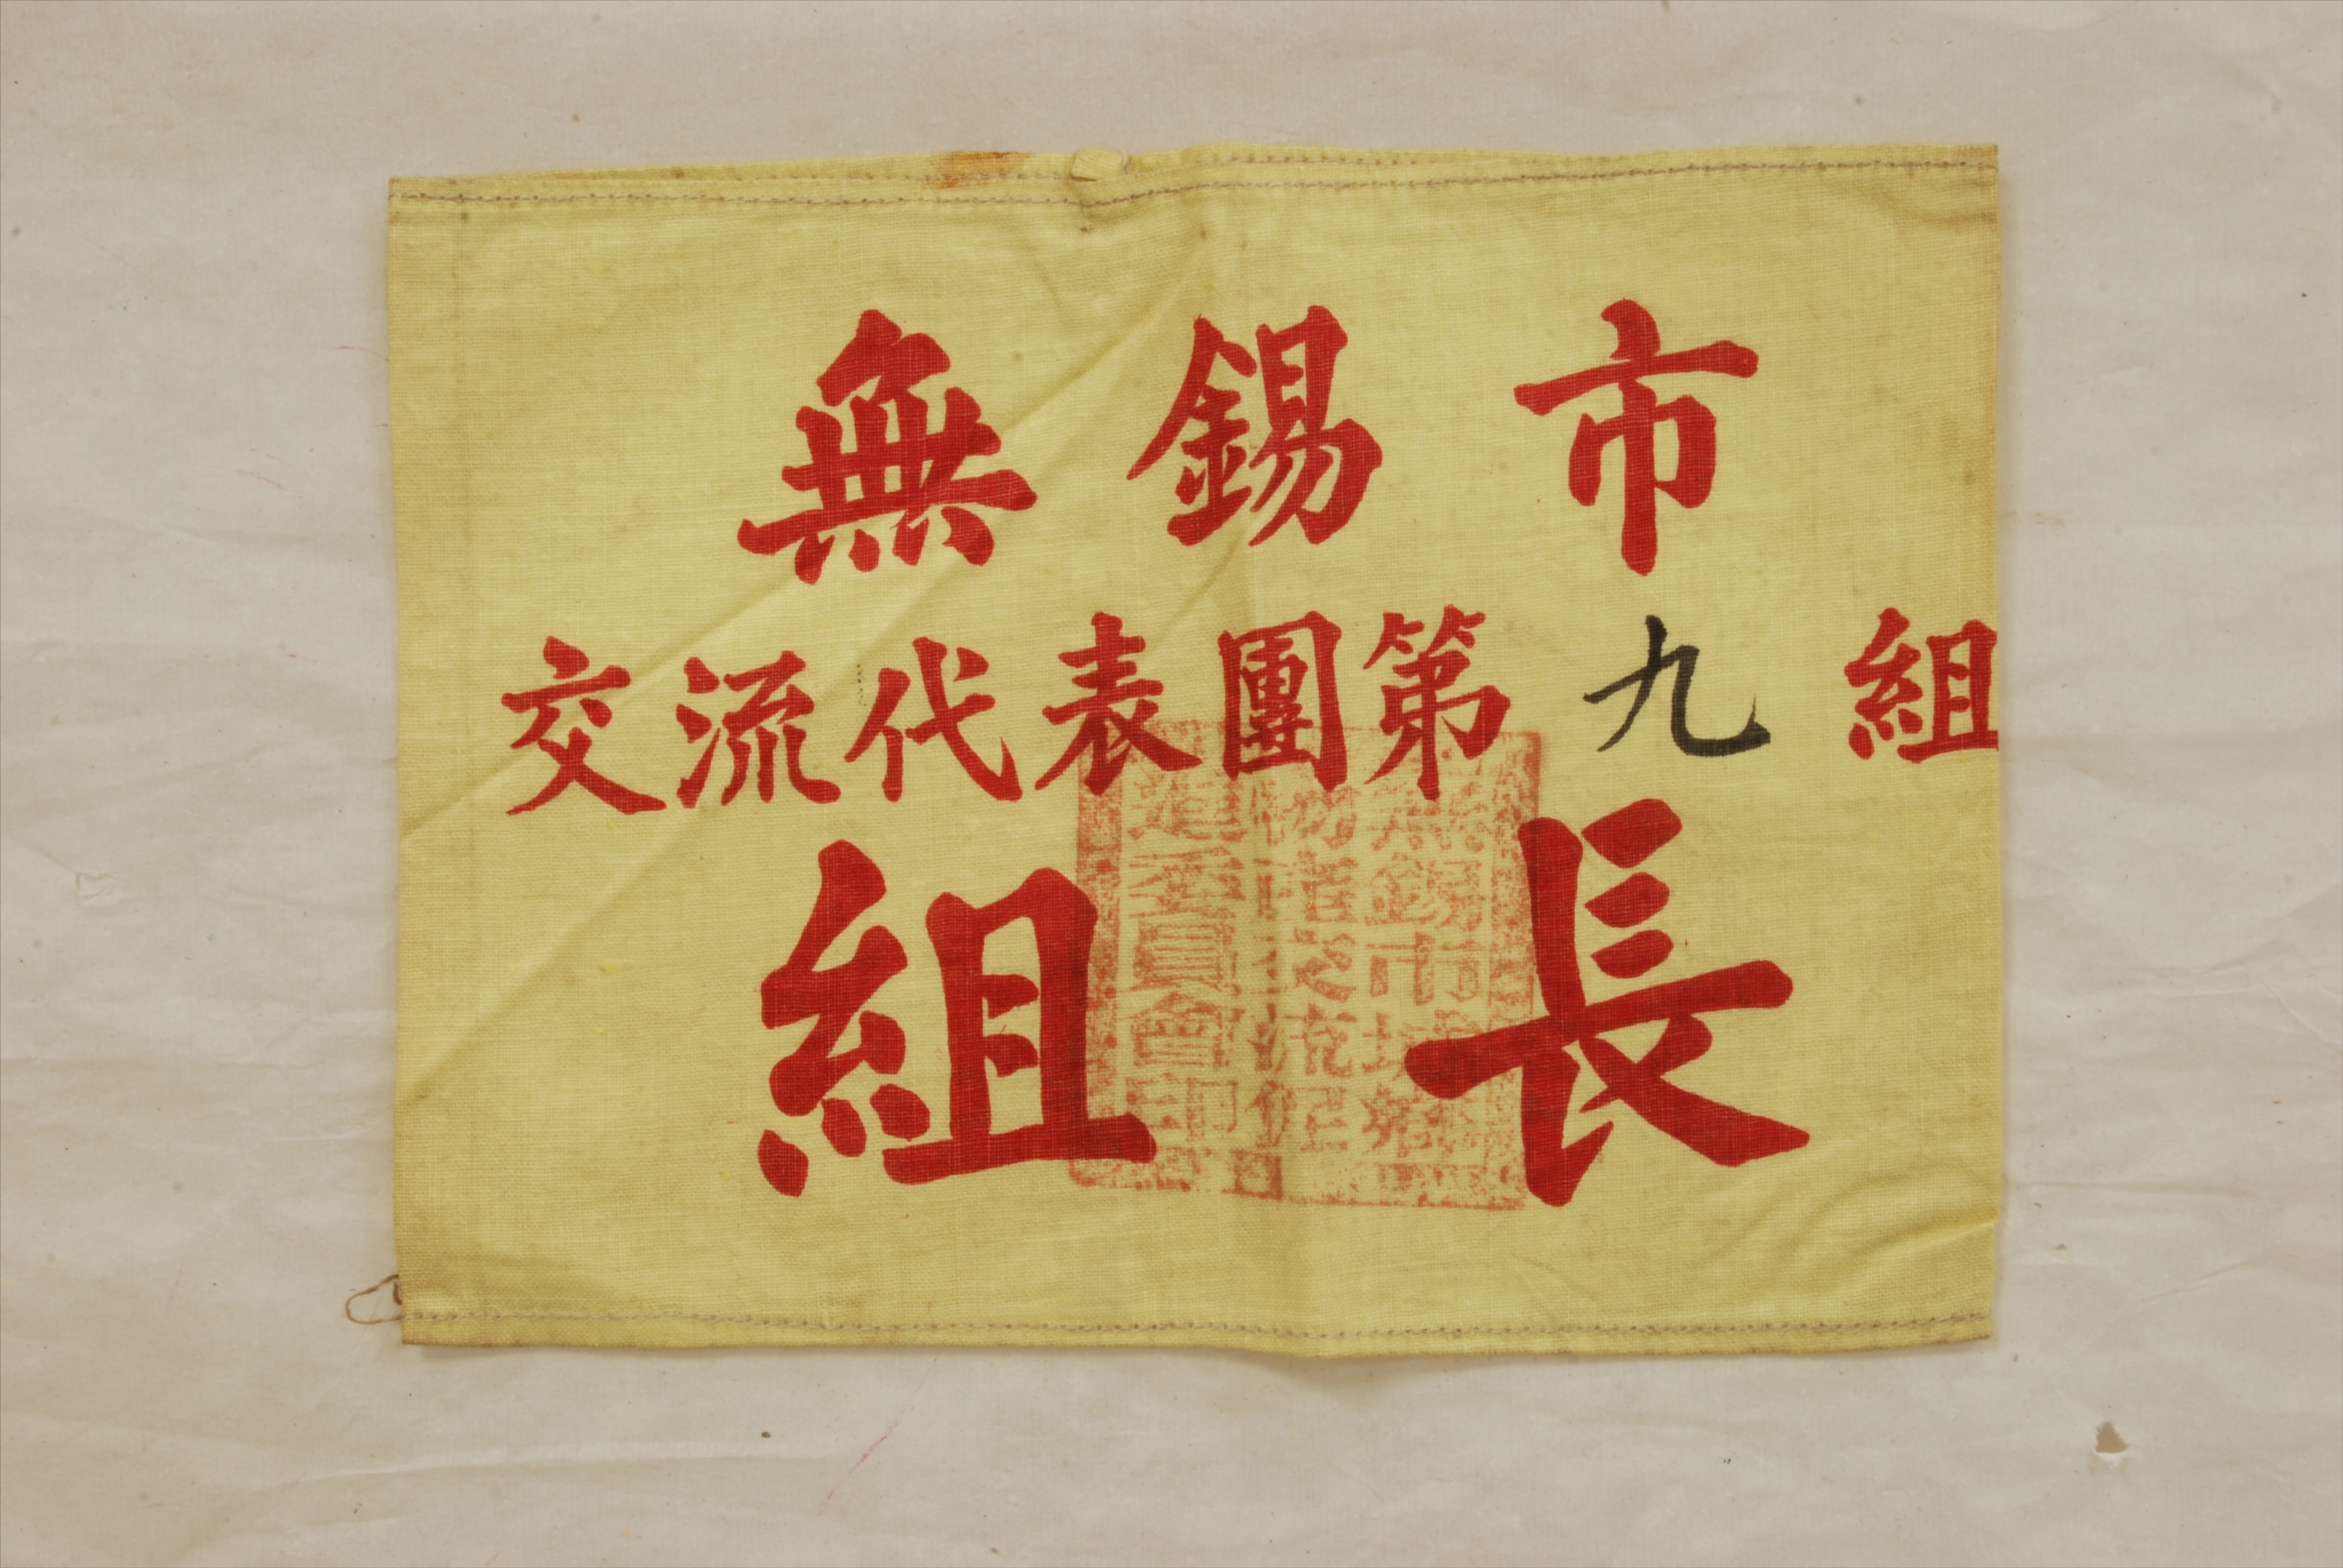 無錫市
交流代表團第九組
組長
無錫市城鄉
物資交流促
進委員會印